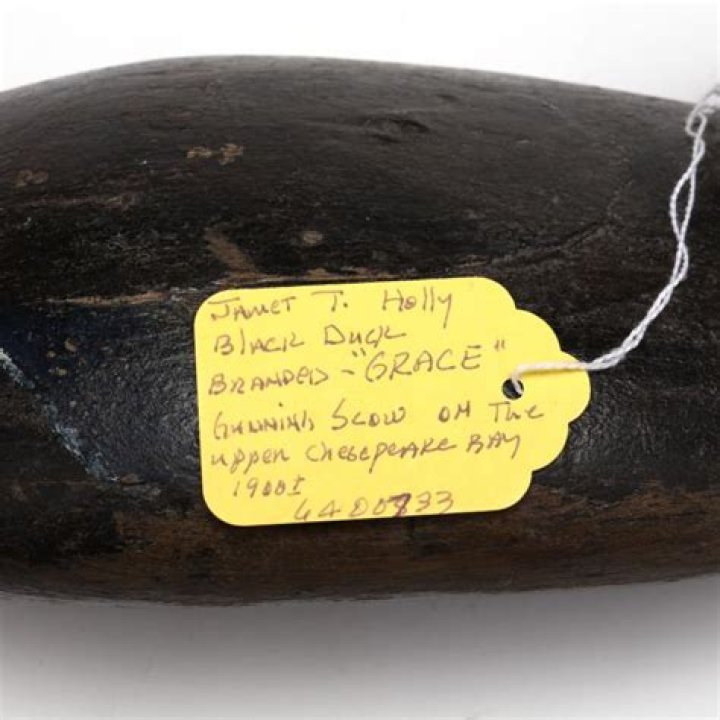 JAMET T. Holly
BlACK DUCK
BRANDED - "GRACE"
GUNNING SCOW ON THE
UPPER CHESEPEAKE BAY
1900±